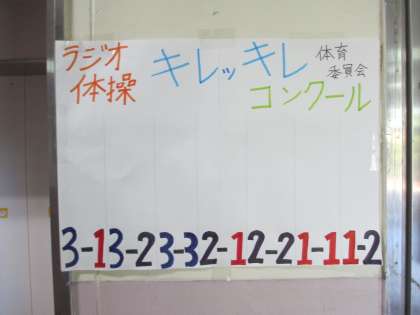 ラジオ
体操
キレッキレ
コンクール
体育
委員会
3-1 3-2 3-3 2-1 2-2 1-1 1-2